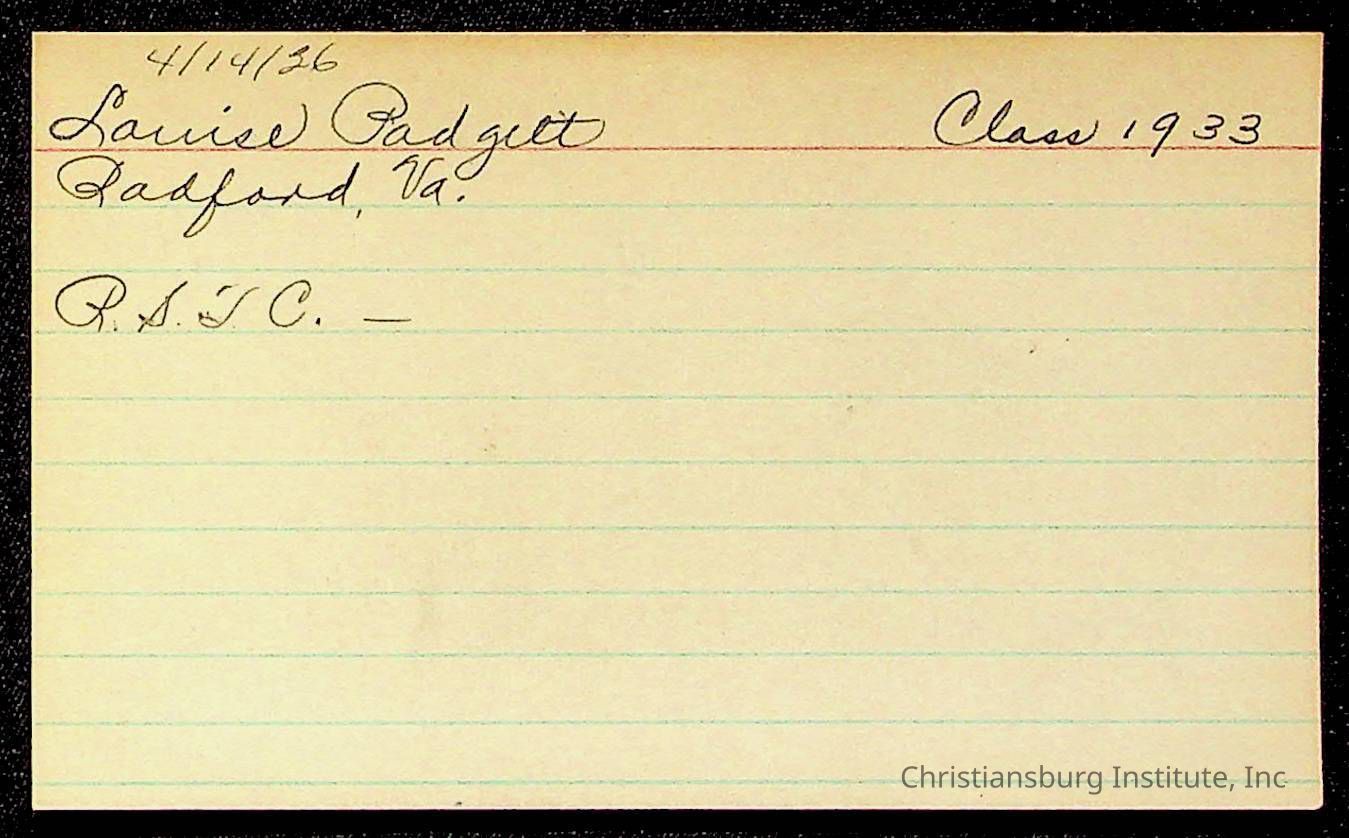 4/14/36
Louise Padgett Class 1933
Radford, Va.
R. S. T C. —
Christiansburg Institute, Inc